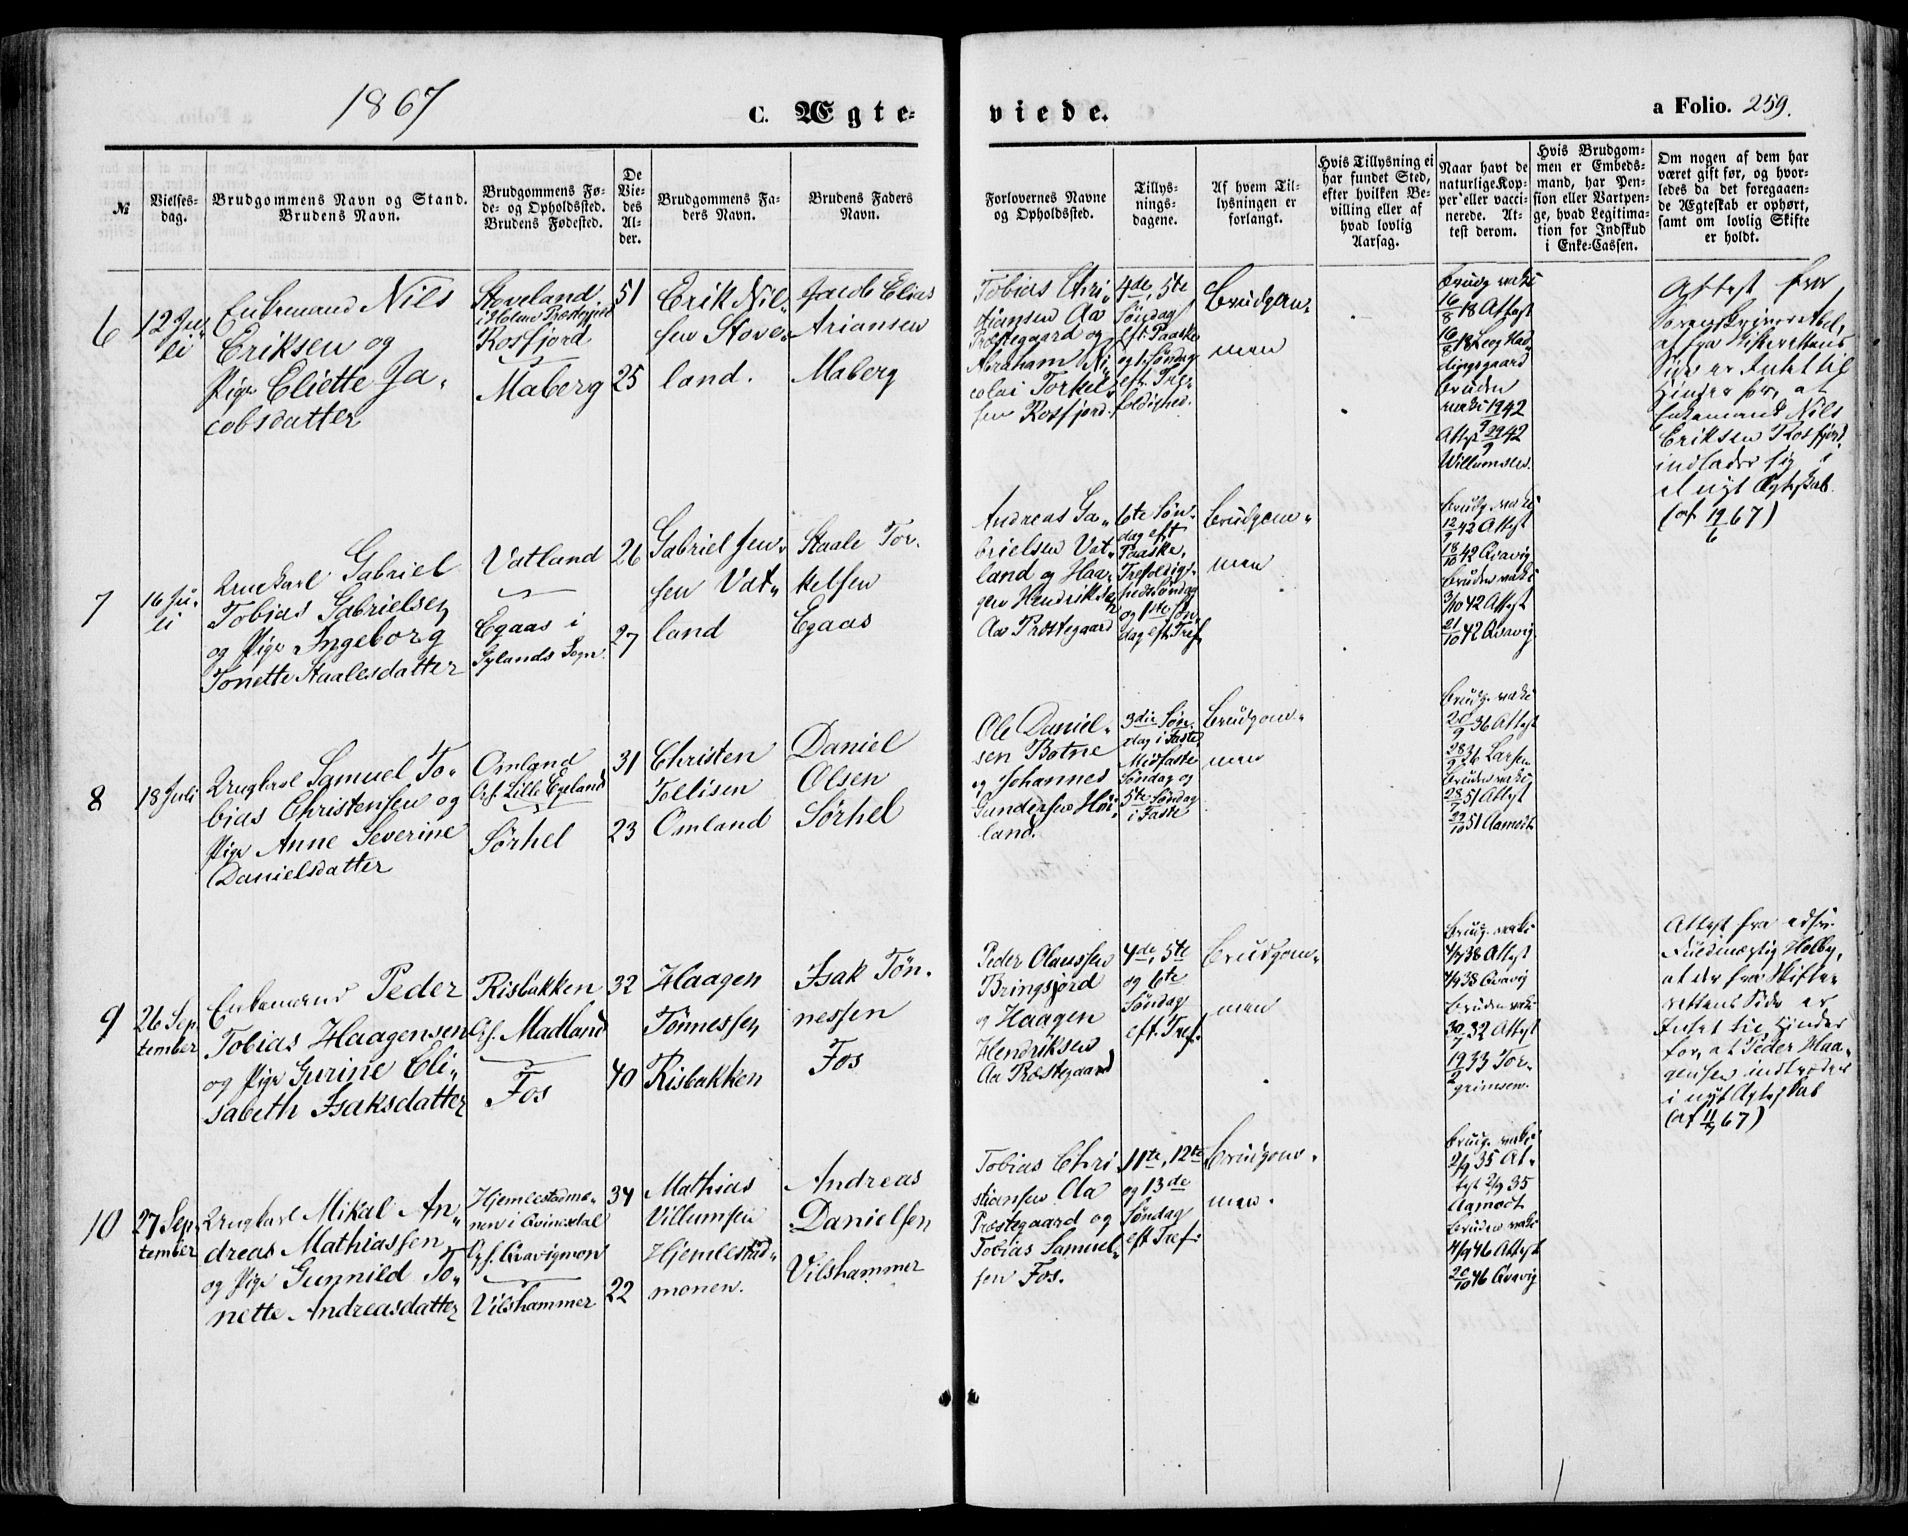 1867
C. Ægte-
viede.
a Folio. 259.
№
Vielses-
dag.
Brudgommens Navn og Stand.
Brudens Navn.
Brudgommens Fø-
de- og Opholdssted.
Brudens Fødested.
De
Vie-
des
Al-
der.
Brudgommens Fa-
ders Navn.
Brudens Faders
Navn.
Forlovernes Navne
og Opholdssted.
Tillys-
nings-
dagene.
Af hvem Til-
lysningen er
forlangt.
Hvis Tillysning ei
har fundet Sted,
efter hvilken Be-
villing eller af
hvad lovlig
Aarsag.
Naar havt de
naturlige Kop-
per eller vacci-
nerede. At-
test derom.
Hvis Brudgom-
men er Embeds-
mand, har Pen-
sion eller Vartpen-
ge, hvad Legitima-
tion for Indskud
i Enke-Cassen.
Om nogen af dem har
været gift før, og hvor-
ledes da det foregaaen-
de Ægteskab er ophørt,
samt om lovlig Skifte
er holdt.
6
12 Ju-
li
Enkemand Nils
Eriksen og
Pige Eliette Ja-
cobsdatter
Stoveland
i Holme Præstegjeld
Rosfjord
Maberg
51
25
Erik Nil-
sen Stove-
land.
Jacob Elias
Ariansen
Maberg
Tobias Chri-
stiansen Aa
Præstegaard og
Abraham Ni-
colai Torkil-
sen Rosfjord.
4de, 5te
Søndag
eft. Paaske
og 1. Søndag
eft. Tre-
foldighed.
Brudgom-
men
Brudg. vakc.
16/8 18 Attest
16/8 18
Bruden
vakc. 1942
Attest 29/9 42
Willumsen.
Attest fra
at fra Skifterettens
Side er Intet til
Hinder for, at
Enkemand Nils
Eriksen Rosfjord
indlader sig i
et nyt Ægteskab
(af 19/6 67)
7
16 Ju-
li
Ungkarl Gabriel
Tobias Gabrielsen
og Pige Ingeborg
Tonette Staalesdatter
Vatland
Egaas i
Gylands Sogn.
26
27
Gabriel Jen-
sen Vat-
land
Staale Tor-
kelsen
Egaas
Andreas Ga-
brielsen Vat-
land og Haa-
gen Hendriksen
Aa Præstegaard
6te Søn-
dag eft
Paaske,
Trefoldig-
hedssøndag
og 1ste Søn-
dag eft. Tref.
Brudgom-
men
Brudg. vakc.
12/9 42 Attest
18/10 42 Qvavig
Bruden vakc.
3/10 42 Attest
21/10 42 Qvavig
8
18 Juli
Ungkarl Samuel To-
bias Christensen og
Pige Anne Severine
Danielsdatter
Omland
Opf. Lille Egeland
Sørhel
31
23
Christen
Tollisen
Omland
Daniel
Olsen
Sørhel
Ole Daniel-
sen Botne
og Johannes
Gundersen Høi-
land.
3die Søn-
dag i Faste,
Midfaste
Søndag og
5te Søndag
i Faste
Brudgom-
men
Brudg. vakc.
20/9 36 Attest
28/9 36 Larsen
Bruden vakc.
28/7 51 Attest
22/10 51 Aamodt.
9
26 Sep-
tember
Enkemand Peder
Tobias Haagensen
og Pige Gurine Eli-
sabeth Isaksdatter
Risbakken
Opf. Madland
Fos
32
40
Haagen
Tønnessen
Risbakken
Isak Tøn-
nessen
Fos
Peder Olaussen
Bringsjord
og Haagen
Hendriksen
Aa Præstegaard
4de, 5te
og 6te
Søndag
eft. Tref.
Brudgom-
men
Brudg. vakc.
4/9 38 Attest
4/9 38 Qvavig
Bruden vakc.
30/7 32 Attest
19/2 33 Tor-
grimsen.
Attest fra
Fuldmægtig Holby,
at der fra Skifte-
rettens Side er
Intet til Hinder
for, at Peder Haa-
gensen indtræder
i nyt Ægteskab
10
27 Sep-
tember
Ungkarl Mikal An-
dreas Mathiassen
og Pige Gunnild To-
nette Andreasdatter
Hjemlestadmo-
nen i Qvinesdal
Opf. Qvavigmon
Vilshammer
34
22
Mathias
Villumsen
Hjemlestad-
monen.
Andreas
Danielsen
Vilshammer
Tobias Chri-
stiansen Aa
Præstegaard og
Tobias Samuel-
sen Fos.
11te, 12te
og 13de
Søndag
eft Tref.
Brudgom-
men.
Brudg. vakc.
2/9 35 At-
test 2/9 35
Aamodt
Bruden vakc.
4/9 46 Attest
20/10 46 Qvavig